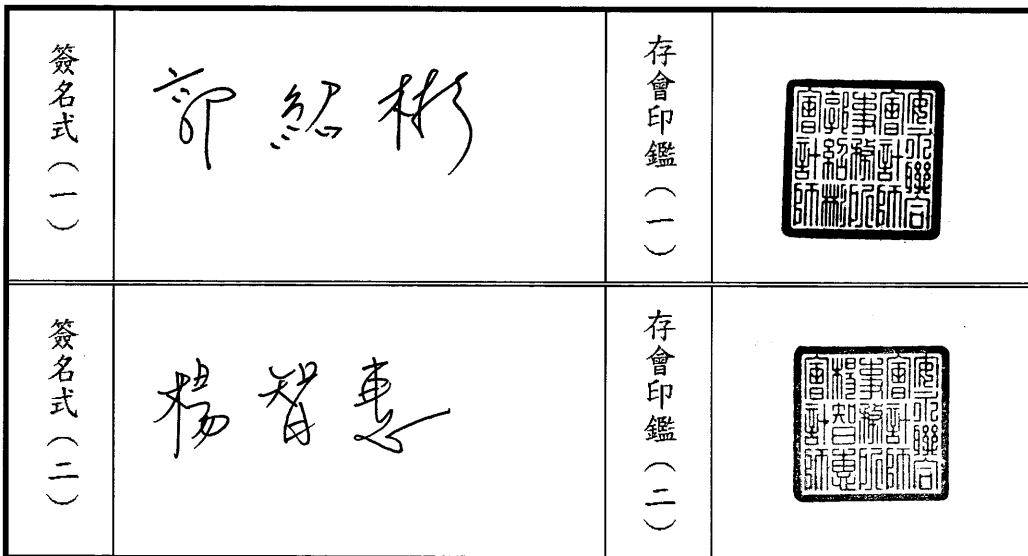 簽名式（一）
郭紹彬
存會印鑑（一）
安永聯合
會計師
事務所
郭紹彬
會計師
簽名式（二）
楊智惠
存會印鑑（二）
安永聯合
會計師
事務所
楊智惠
會計師